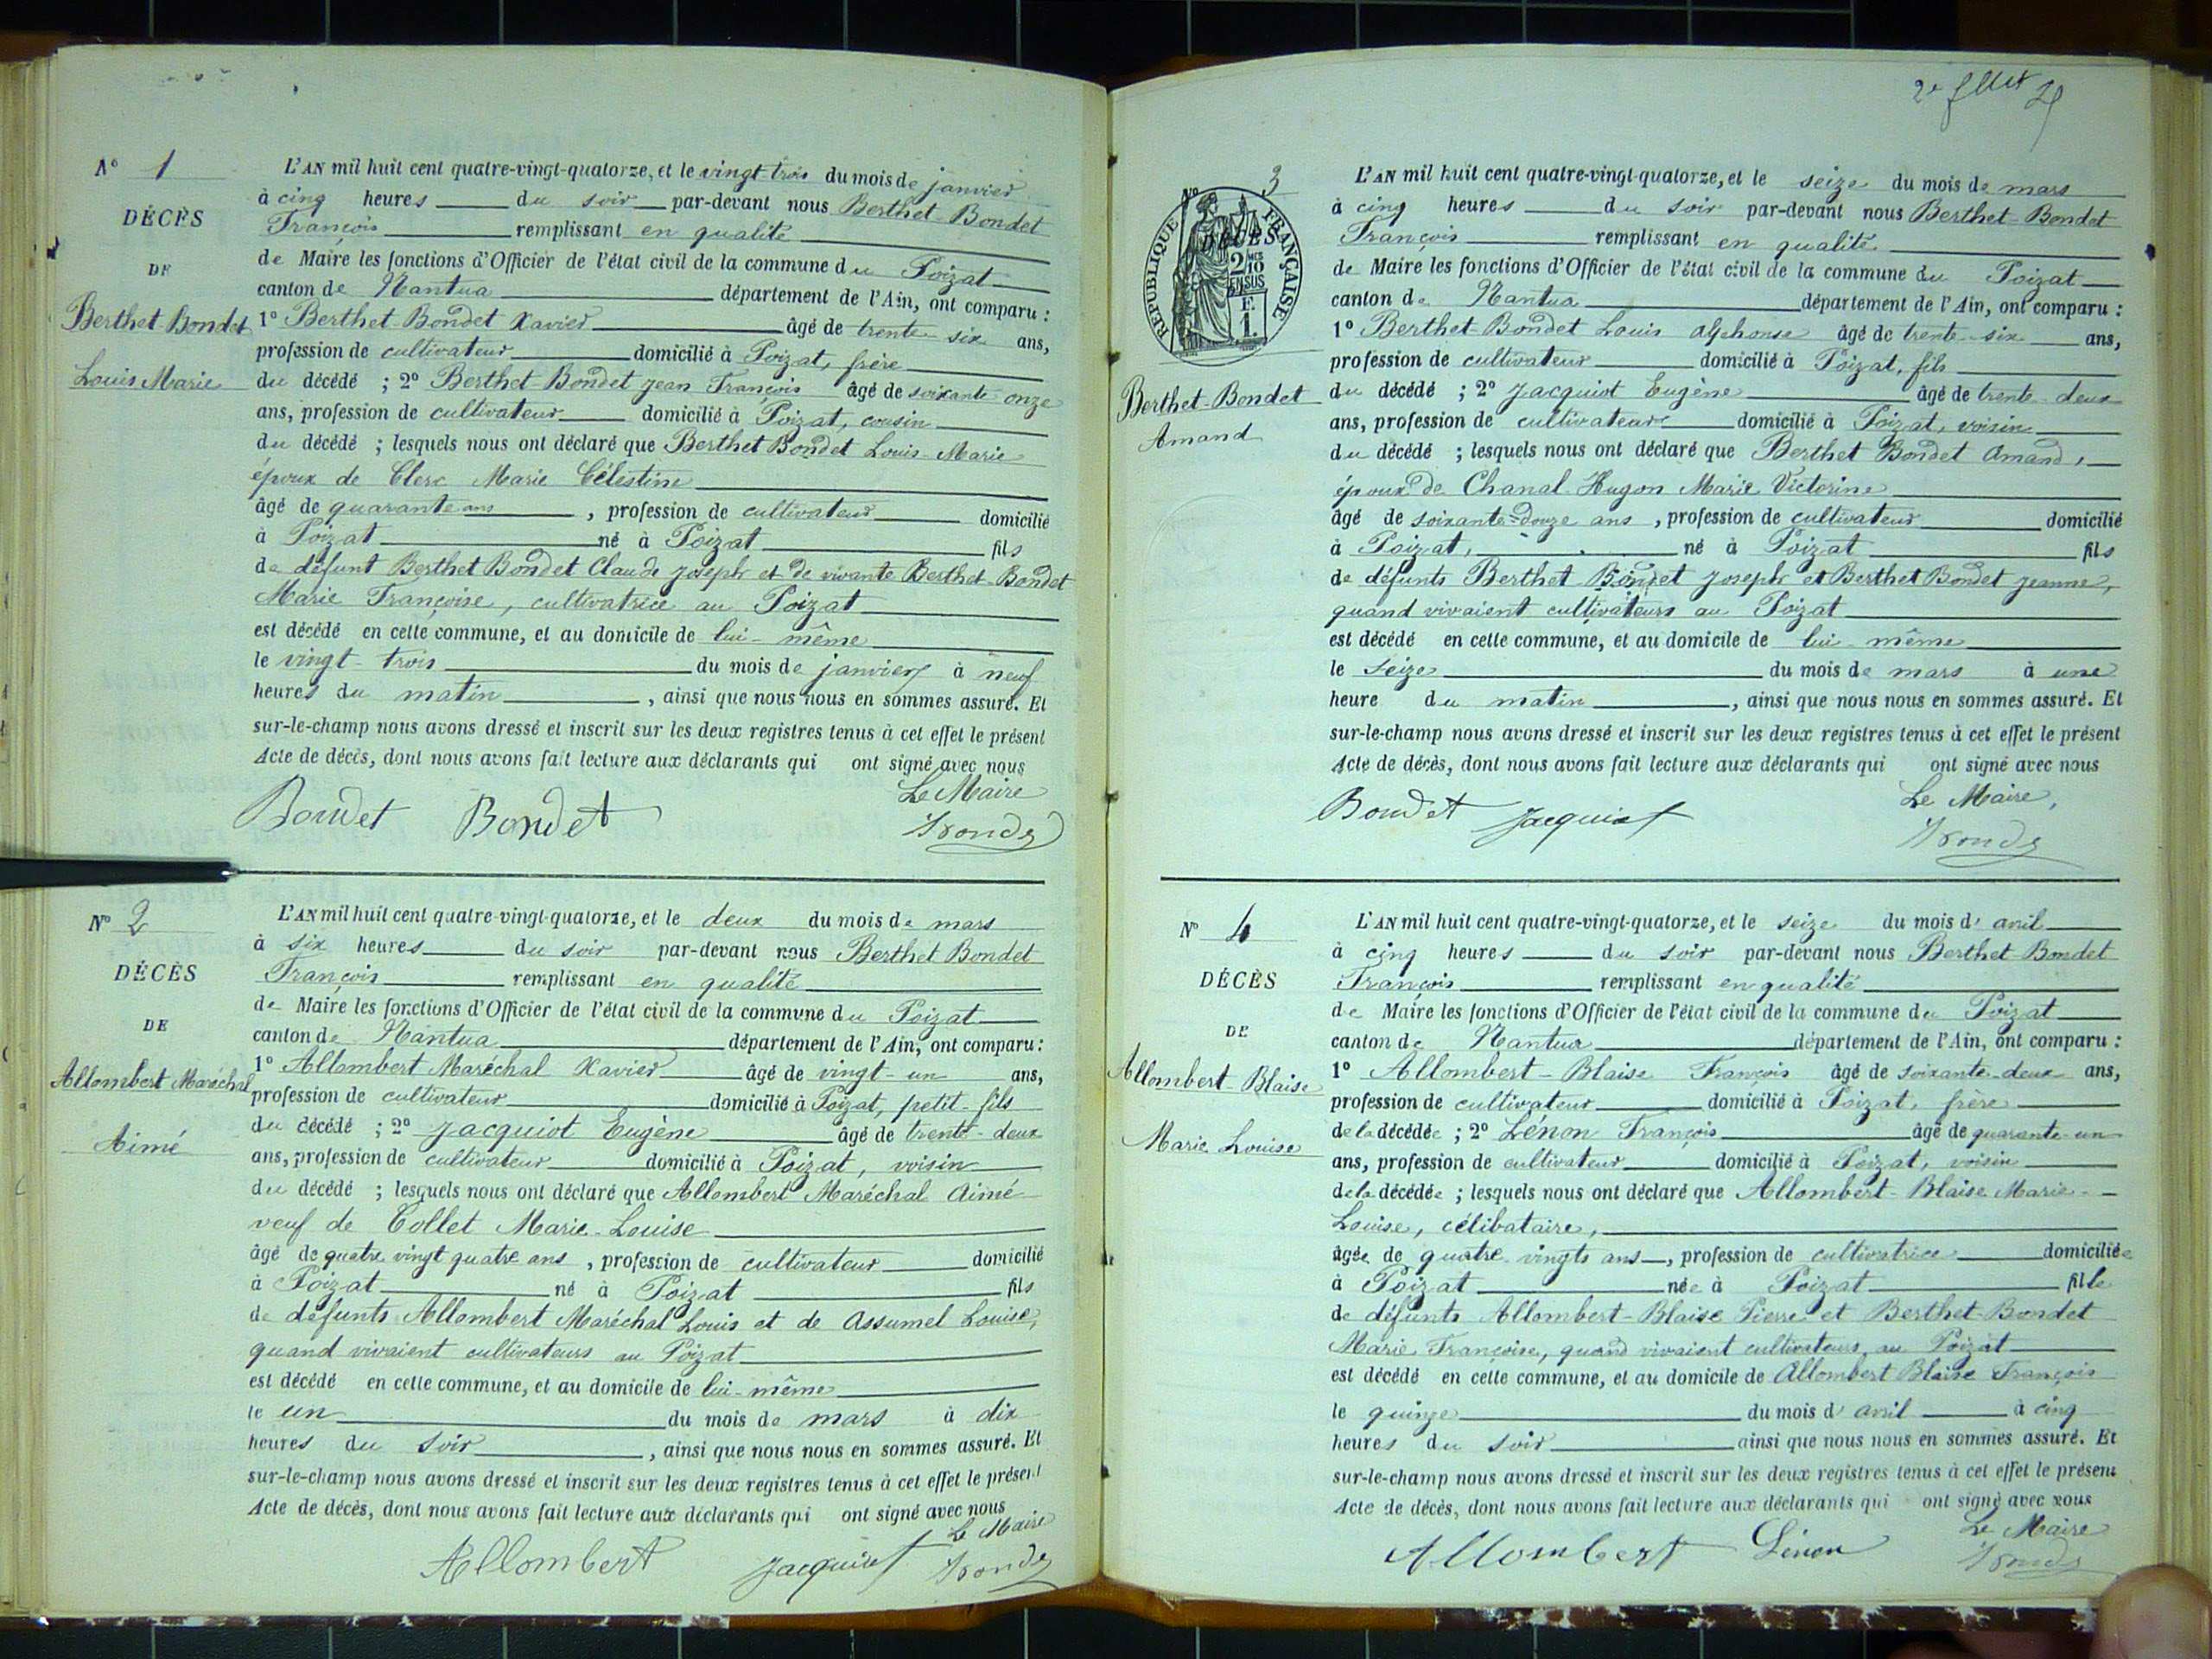 N° 1
DÉCÈS
DE
Berthet-Bondet
Louis Marie
L'AN mil huit cent quatre-vingt-quatorze, et le vingt-trois du mois de janvier
à cinq heures du soir par-devant nous Berthet-Bondet
François remplissant en qualité
de Maire les fonctions d'Officier de l'état civil de la commune du Poizat
canton de Nantua département de l'Ain, ont comparu :
1° Berthet-Bondet Xavier âgé de trente-six ans,
profession de cultivateur domicilié à Poizat, frère
du décédé ; 2° Berthet-Bondet Jean François âgé de soixante onze
ans, profession de cultivateur domicilié à Poizat, cousin
du décédé ; lesquels nous ont déclaré que Berthet Bondet Louis-Marie
époux de Clerc Marie Célestine
âgé de quarante ans, profession de cultivateur domicilié
à Poizat né à Poizat fils
de défunt Berthet Bondet Claude Joseph et de vivante Berthet-Bondet
Marie Françoise, cultivatrice au Poizat
est décédé en cette commune, et au domicile de lui-même
le vingt-trois du mois de janvier à neuf
heures du matin, ainsi que nous nous en sommes assuré. Et
sur-le-champ nous avons dressé et inscrit sur les deux registres tenus à cet effet le présent
Acte de décès, dont nous avons fait lecture aux déclarants qui ont signé avec nous
Le Maire
Bondet Bondet
N° 2
DÉCÈS
DE
Allombert Maréchal
Aimé
L'AN mil huit cent quatre-vingt-quatorze, et le deux du mois de mars
à six heures du soir par-devant nous Berthet Bondet
François remplissant en qualité
de Maire les fonctions d'Officier de l'état civil de la commune du Poizat
canton de Nantua département de l'Ain, ont comparu :
1° Allombert Maréchal Xavier âgé de vingt-un ans,
profession de cultivateur domicilié à Poizat, petit-fils
du décédé ; 2° Jacquiot Eugène âgé de trente-deux
ans, profession de cultivateur domicilié à Poizat, voisin
du décédé ; lesquels nous ont déclaré que Allombert Maréchal Aimé
veuf de Collet Marie-Louise
âgé de quatre vingt quatre ans, profession de cultivateur domicilié
à Poizat né à Poizat fils
de défunts Allombert Maréchal Louis et de Assumel Louise,
quand vivaient cultivateurs au Poizat
est décédé en cette commune, et au domicile de lui-même
le un du mois de mars à dix
heures du soir, ainsi que nous nous en sommes assuré. Et
sur-le-champ nous avons dressé et inscrit sur les deux registres tenus à cet effet le présent
Acte de décès, dont nous avons fait lecture aux déclarants qui ont signé avec nous
Le Maire
Allombert Jacquiot
2e fllet
N° 3
RÉPUBLIQUE FRANÇAISE
DÉCÈS
2/10
EN SUS
F.
1.
Berthet-Bondet
Amand
L'AN mil huit cent quatre-vingt-quatorze, et le seize du mois de mars
à cinq heures du soir par-devant nous Berthet-Bondet
François remplissant en qualité
de Maire les fonctions d'Officier de l'état civil de la commune du Poizat
canton de Nantua département de l'Ain, ont comparu :
1° Berthet-Bondet Louis Alphonse âgé de trente-six ans,
profession de cultivateur domicilié à Poizat, fils
du décédé ; 2° Jacquiot Eugène âgé de trente-deux
ans, profession de cultivateur domicilié à Poizat, voisin
du décédé ; lesquels nous ont déclaré que Berthet Bondet Amand,
époux de Chanal-Hugon Marie Victorine
âgé de soixante-douze ans, profession de cultivateur domicilié
à Poizat, né à Poizat fils
de défunts Berthet-Bondet Joseph et Berthet Bondet Jeanne,
quand vivaient cultivateurs au Poizat
est décédé en cette commune, et au domicile de lui-même
le seize du mois de mars à une
heure du matin, ainsi que nous nous en sommes assuré. Et
sur-le-champ nous avons dressé et inscrit sur les deux registres tenus à cet effet le présent
Acte de décès, dont nous avons fait lecture aux déclarants qui ont signé avec nous
Le Maire,
Bondet Jacquiot
N° 4
DÉCÈS
DE
Allombert-Blaise
Marie Louise
L'AN mil huit cent quatre-vingt-quatorze, et le seize du mois d'avril
à cinq heures du soir par-devant nous Berthet-Bondet
François remplissant en qualité
de Maire les fonctions d'Officier de l'état civil de la commune du Poizat
canton de Nantua département de l'Ain, ont comparu :
1° Allombert-Blaise François âgé de soixante-deux ans,
profession de cultivateur domicilié à Poizat, frère
de la décédée ; 2° Lénon François âgé de quarante-un
ans, profession de cultivateur domicilié à Poizat, voisin
de la décédée ; lesquels nous ont déclaré que Allombert-Blaise Marie-
Louise, célibataire,
âgée de quatre-vingts ans, profession de cultivatrice domiciliée
à Poizat née à Poizat fille
de défunts Allombert-Blaise Pierre et Berthet-Bondet
Marie Françoise, quand vivaient cultivateurs au Poizat
est décédé en cette commune, et au domicile de Allombert Blaise François
le quinze du mois d'avril à cinq
heures du soir ainsi que nous nous en sommes assuré. Et
sur-le-champ nous avons dressé et inscrit sur les deux registres tenus à cet effet le présent
Acte de décès, dont nous avons fait lecture aux déclarants qui ont signé avec nous
Le Maire
Allombert Lénon